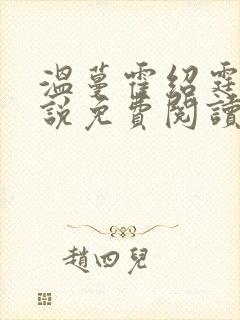 溫蔓霍紹霆
說免費閱讀
趙四兒